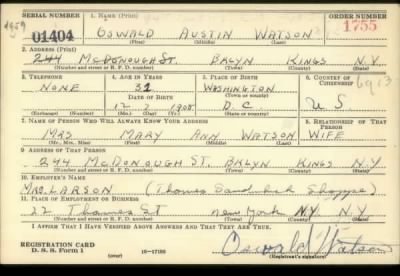 SERIAL NUMBER 1. NAME (Print) ORDER NUMBER
01404 OSWALD AUSTIN WATSON 1755
(First) (Middle) (Last)
2. ADDRESS (Print)
244 McDONOUGH ST. BKLYN KINGS N.Y.
(Number and street or R. F. D. number) (Town) (County) (State)
3. TELEPHONE 4. AGE IN YEARS 5. PLACE OF BIRTH 6. COUNTRY OF CITIZENSHIP
NONE 32 WASHINGTON
DATE OF BIRTH (Town or county)
12 2 1908 D.C. U S
(Exchange) (Number) (Mo.) (Day) (Yr.) (State or country)
7. NAME OF PERSON WHO WILL ALWAYS KNOW YOUR ADDRESS 8. RELATIONSHIP OF THAT PERSON
MRS MARY ANN WATSON WIFE
(Mr., Mrs., Miss) (First) (Middle) (Last)
9. ADDRESS OF THAT PERSON
244 McDONOUGH ST. BKLYN KINGS N.Y
(Number and street or R. F. D. number) (Town) (County) (State)
10. EMPLOYER'S NAME
MRS. LARSON (Thames Sandwich Shoppe)
11. PLACE OF EMPLOYMENT OR BUSINESS
22 Thames St New York N.Y. N.Y
(Number and street or R. F. D. number) (Town) (County) (State)
I AFFIRM THAT I HAVE VERIFIED ABOVE ANSWERS AND THAT THEY ARE TRUE.
REGISTRATION CARD Oswald Watson
D. S. S. Form 1 (over) 16-17105 (Registrant's signature)